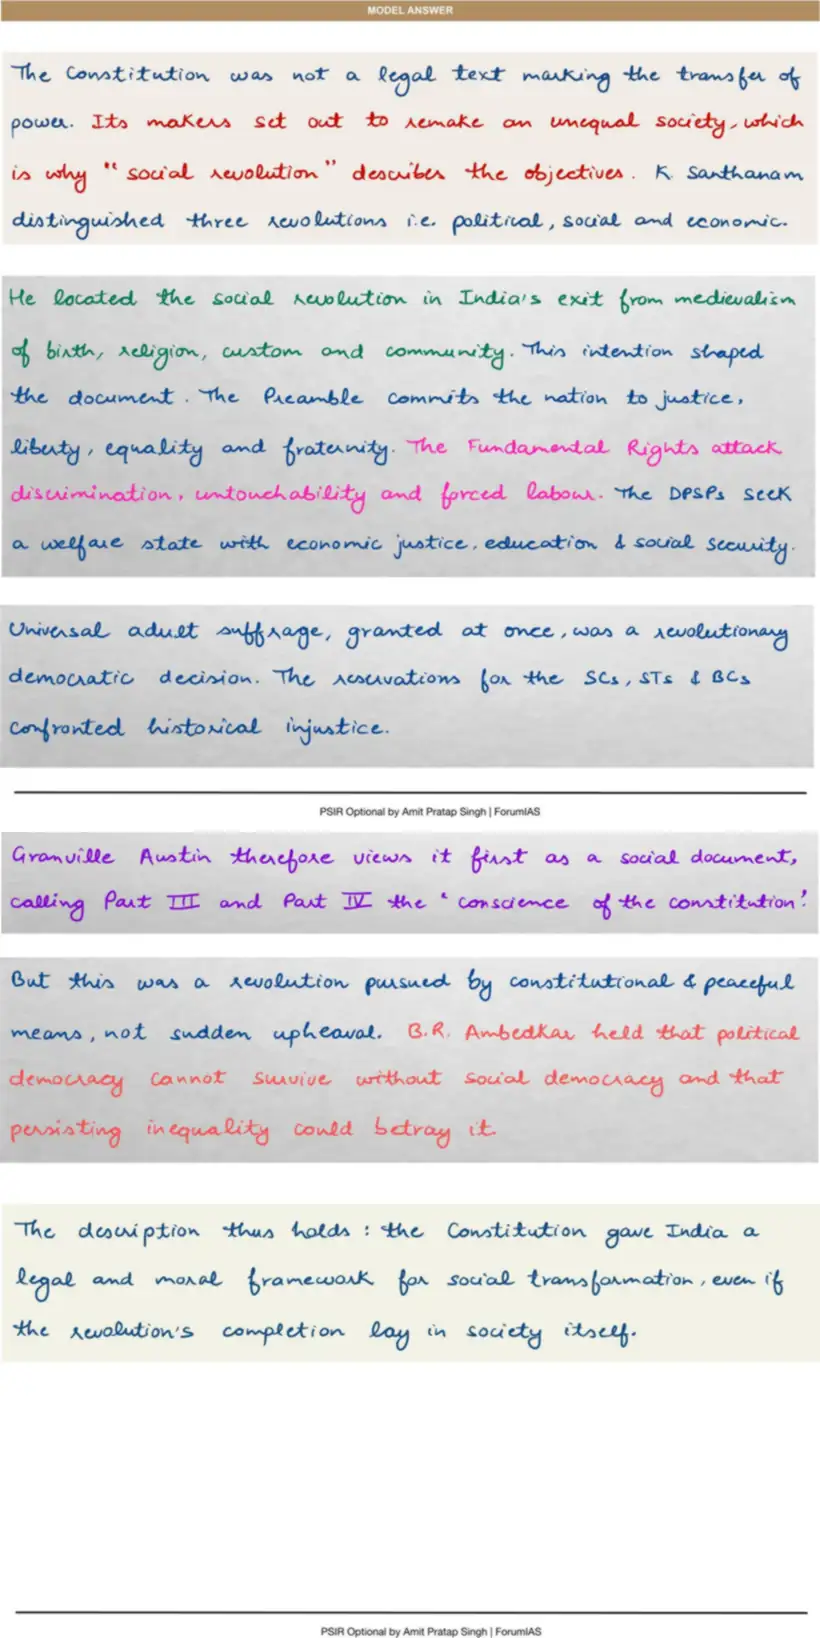 MODEL ANSWER
The Constitution was not a legal text marking the transfer of
power. Its makers set out to remake an unequal society, which
is why "social revolution" describes the objectives. K Santhanam
distinguished three revolutions i.e. political, social and economic.
He located the social revolution in India's exit from medievalism
of birth, religion, custom and community. This intention shaped
the document. The Preamble commits the nation to justice,
liberty, equality and fraternity. The Fundamental Rights attack
discrimination, untouchability and forced labour. The DPSPs seek
a welfare state with economic justice, education & social security.
Universal adult suffrage, granted at once, was a revolutionary
democratic decision. The reservations for the SCs, STs & BCs
confronted historical injustice.
PSIR Optional by Amit Pratap Singh | ForumIAS
Granville Austin therefore views it first as a social document,
calling Part III and Part IV the 'conscience of the constitution'.
But this was a revolution pursued by constitutional & peaceful
means, not sudden upheaval. B.R. Ambedkar held that political
democracy cannot survive without social democracy and that
persisting inequality could betray it.
The description thus holds : the Constitution gave India a
legal and moral framework for social transformation, even if
the revolution's completion lay in society itself.
PSIR Optional by Amit Pratap Singh | ForumIAS